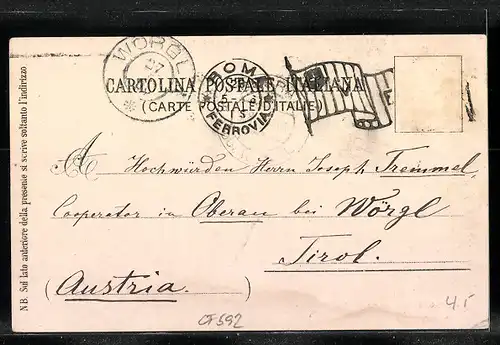 WÖRGL
27
ROMA
FERROVIA
CARTOLINA POSTALE ITALIANA
(CARTE POSTALE D'ITALIE)
N.B. Sul lato anteriore della presente si scrive soltanto l'indirizzo
A Hochwürden Herrn Joseph Tremmel,
Cooperator in Oberau bei Wörgl
Tirol.
(Austria.)
CF592